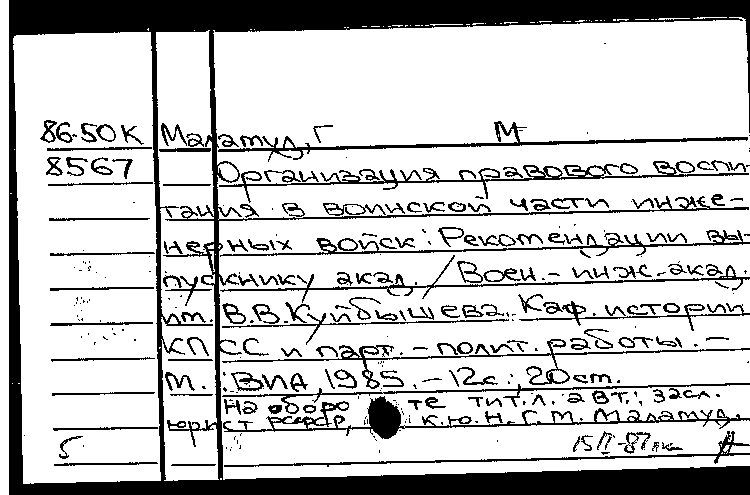 86-50К Маламуд, Г М
8567 Организация правового воспи-
тания в воинской части инже-
нерных войск: Рекомендации вы-
пускнику акад. / Воен.-инж. акад.
им. В.В. Куйбышева. Каф. истории
КПСС и парт.-полит. работы. –
М.: ВИА, 1985. – 12с.; 20 см.
На оборо те тит. л. авт.: засл.
юрист РСФСР, к.ю.н. Г.М. Маламуд.
5 15/II-87